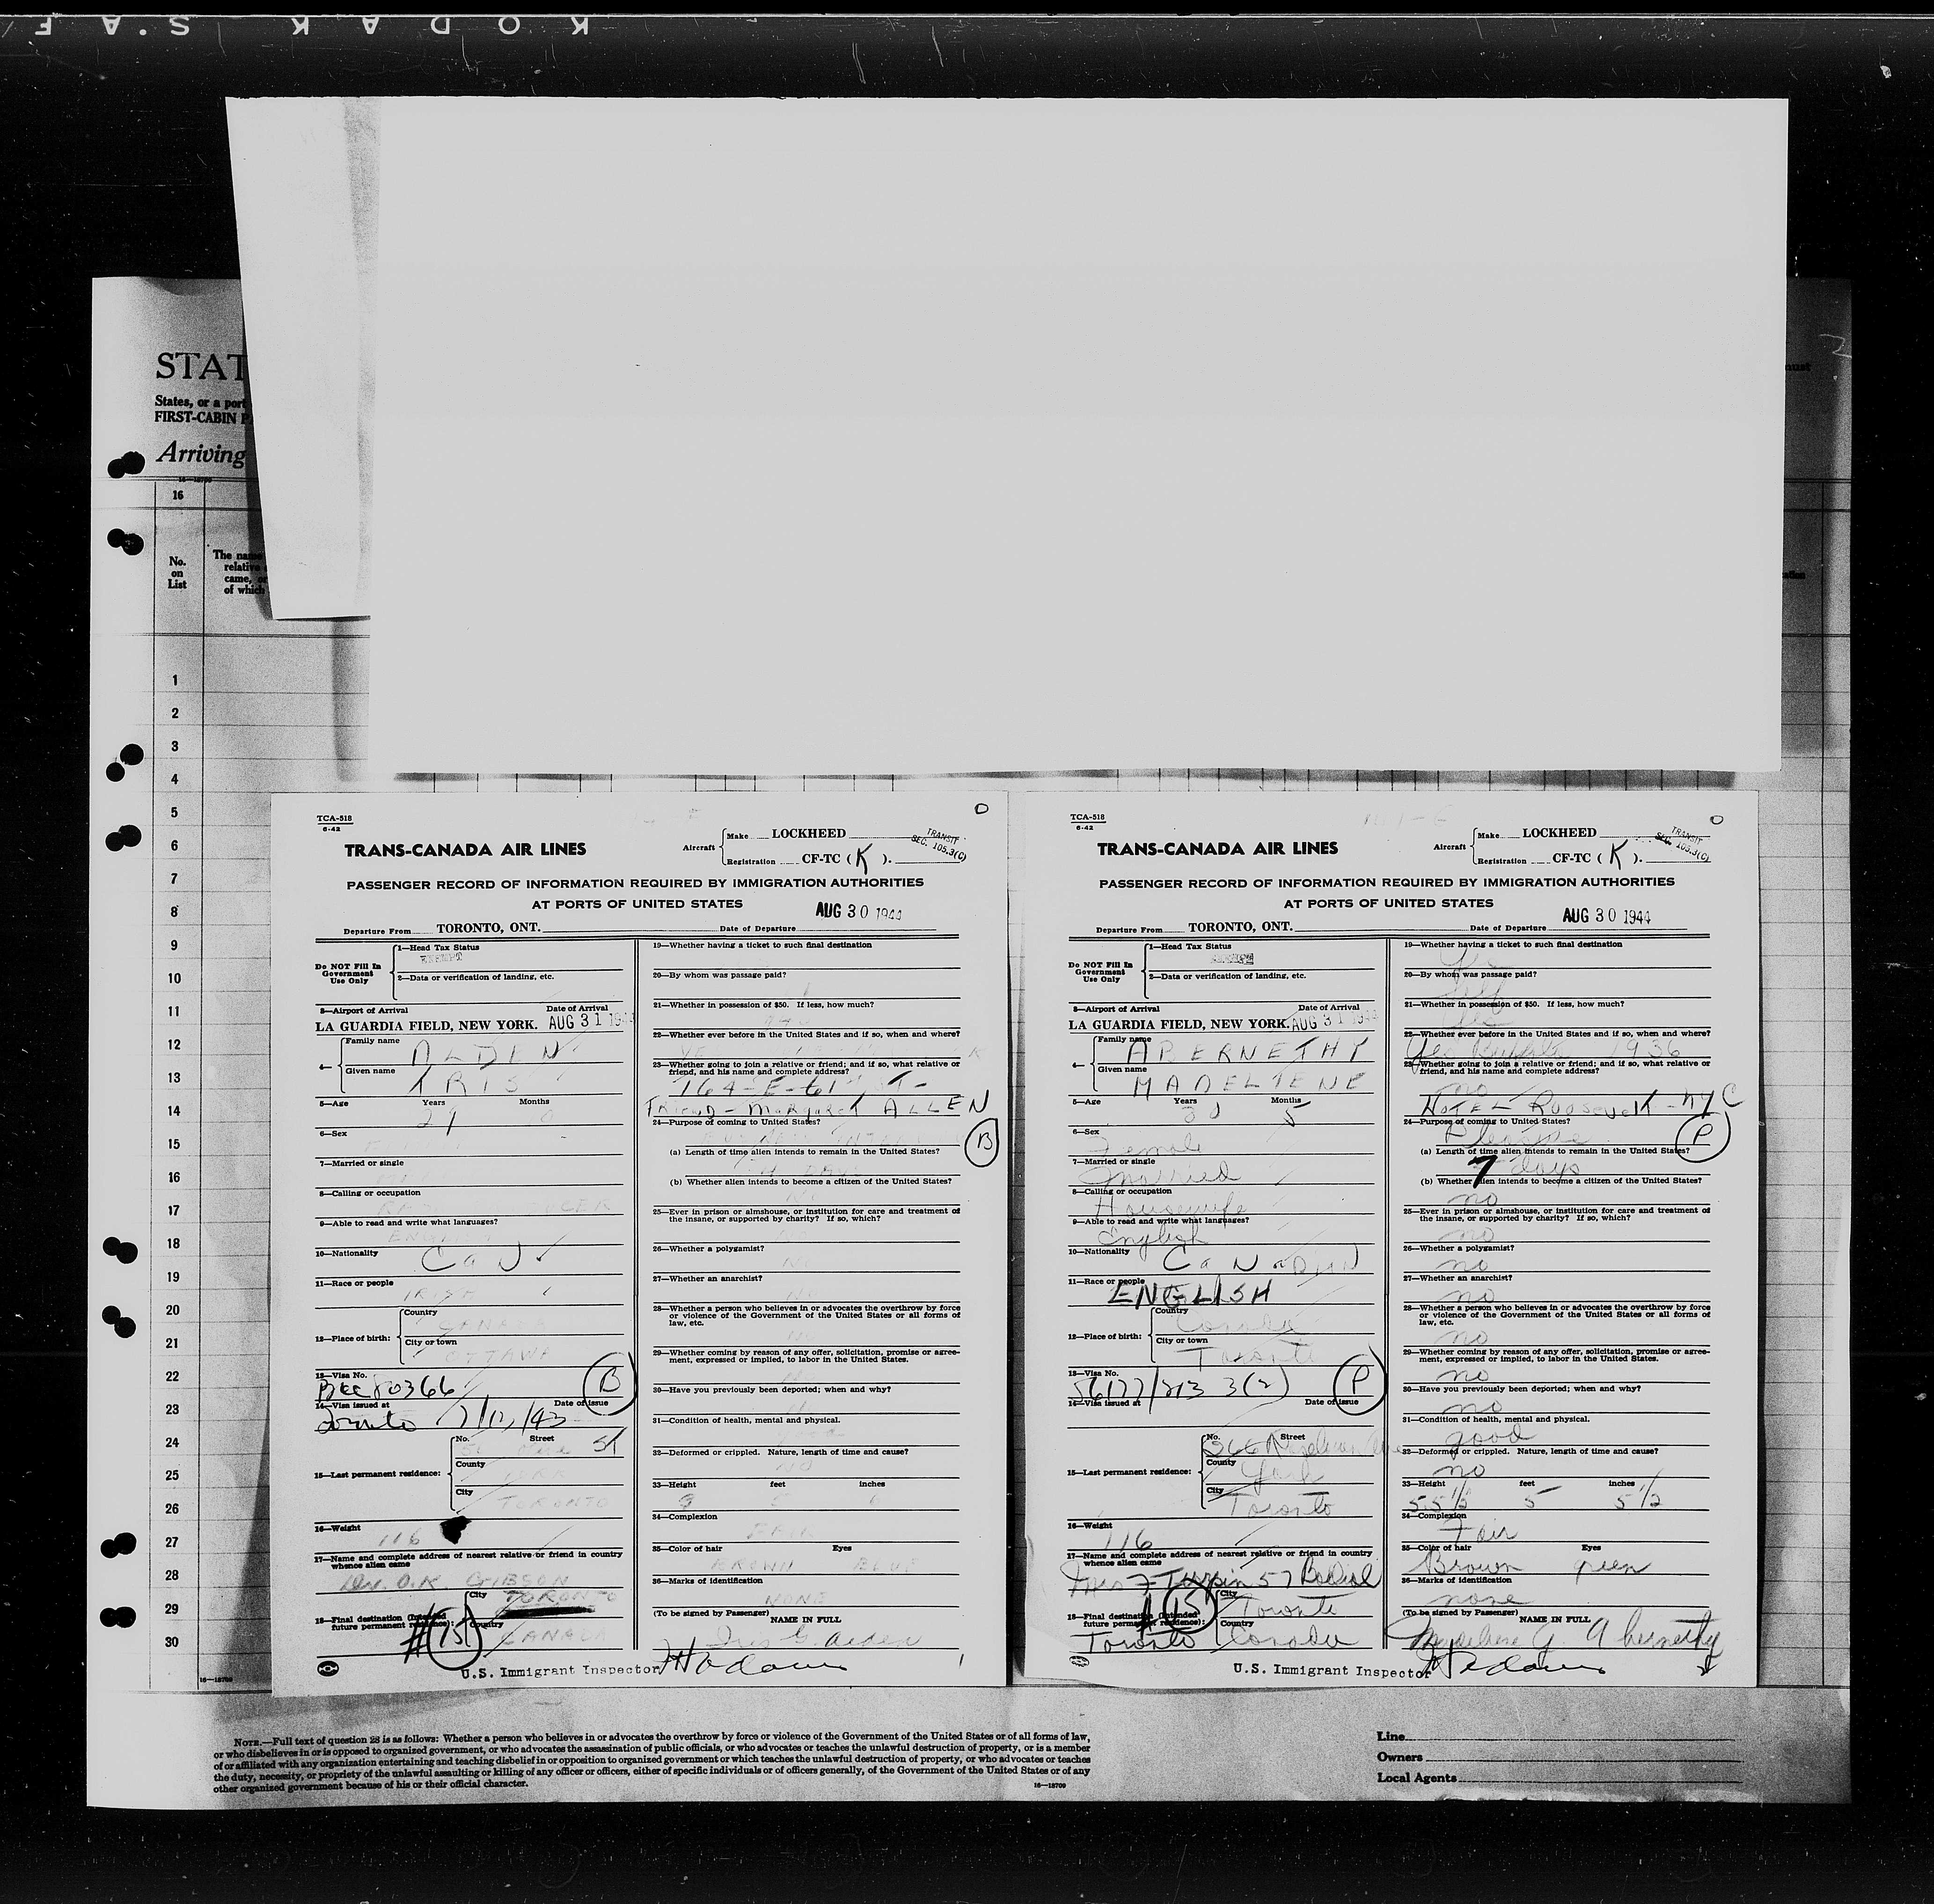 KODAK S.A F
STAT
States, or a port
FIRST-CABIN P
Arriving
16
No.
on
List
The name
relative
came, or
of which
must
1
2
3
4
5
6
7
8
9
10
11
12
13
14
15
16
17
18
19
20
21
22
23
24
25
26
27
28
29
30
TCA-518
6-42
TRANS-CANADA AIR LINES
Aircraft
Make LOCKHEED
Registration CF-TC (K).
TRANSIT
SEC. 105.3(C)
PASSENGER RECORD OF INFORMATION REQUIRED BY IMMIGRATION AUTHORITIES
AT PORTS OF UNITED STATES
AUG 30 1944
Departure From TORONTO, ONT. Date of Departure
Do NOT Fill In
Government
Use Only
1—Head Tax Status
EXEMPT
2—Data or verification of landing, etc.
3—Airport of Arrival Date of Arrival
LA GUARDIA FIELD, NEW YORK. AUG 31 1944
4—
Family name
ALDEN
Given name
IRIS
5—Age Years Months
29 0
6—Sex
7—Married or single
8—Calling or occupation
9—Able to read and write what languages?
ENGLISH
10—Nationality
CaN
11—Race or people
IRISH
12—Place of birth:
Country
CANADA
City or town
OTTAWA
13—Visa No.
BCC 80366
B
14—Visa issued at Date of issue
Toronto 7/12/43
15—Last permanent residence:
No. Street
ST
County
YORK
City
TORONTO
16—Weight
116
17—Name and complete address of nearest relative or friend in country
whence alien came
O.K. GIBSON
City
TORONTO
18—Final destination (Intended
future permanent residence):
Country
CANADA
#15
19—Whether having a ticket to such final destination
20—By whom was passage paid?
21—Whether in possession of $50. If less, how much?
22—Whether ever before in the United States and if so, when and where?
23—Whether going to join a relative or friend; and if so, what relative or
friend, and his name and complete address?
164-E-61 ST-
Friend - Margaret ALLEN
24—Purpose of coming to United States?
B
(a) Length of time alien intends to remain in the United States?
(b) Whether alien intends to become a citizen of the United States?
NO
25—Ever in prison or almshouse, or institution for care and treatment of
the insane, or supported by charity? If so, which?
NO
26—Whether a polygamist?
NO
27—Whether an anarchist?
NO
28—Whether a person who believes in or advocates the overthrow by force
or violence of the Government of the United States or all forms of
law, etc.
NO
29—Whether coming by reason of any offer, solicitation, promise or agree-
ment, expressed or implied, to labor in the United States.
30—Have you previously been deported; when and why?
31—Condition of health, mental and physical.
32—Deformed or crippled. Nature, length of time and cause?
NO
33—Height feet inches
5 6
34—Complexion
FAIR
35—Color of hair Eyes
BROWN BLUE
36—Marks of identification
NONE
(To be signed by Passenger) NAME IN FULL
Iris G. Alden
U.S. Immigrant Inspector
TCA-518
6-42
TRANS-CANADA AIR LINES
Aircraft
Make LOCKHEED
Registration CF-TC (K).
TRANSIT
SEC. 105.3(C)
PASSENGER RECORD OF INFORMATION REQUIRED BY IMMIGRATION AUTHORITIES
AT PORTS OF UNITED STATES
AUG 30 1944
Departure From TORONTO, ONT. Date of Departure
Do NOT Fill In
Government
Use Only
1—Head Tax Status
EXEMPT
2—Data or verification of landing, etc.
3—Airport of Arrival Date of Arrival
LA GUARDIA FIELD, NEW YORK. AUG 31 1944
4—
Family name
ABERNETHY
Given name
MADELIENE
5—Age Years Months
30 5
6—Sex
Female
7—Married or single
Married
8—Calling or occupation
Housewife
9—Able to read and write what languages?
English
10—Nationality
CaNaDian
11—Race or people
ENGLISH
12—Place of birth:
Country
Canada
City or town
Toronto
13—Visa No.
56177/213 3(2)
P
14—Visa issued at Date of issue
15—Last permanent residence:
No. Street
County
York
City
Toronto
16—Weight
116
17—Name and complete address of nearest relative or friend in country
whence alien came
Mrs F Turpin 57 Balliol
City
Toronto
18—Final destination (Intended
future permanent residence):
Country
Toronto Canada
#15
19—Whether having a ticket to such final destination
Yes
20—By whom was passage paid?
Self
21—Whether in possession of $50. If less, how much?
Yes
22—Whether ever before in the United States and if so, when and where?
Yes Buffalo 1936
23—Whether going to join a relative or friend; and if so, what relative or
friend, and his name and complete address?
no
HOTEL Roosevelt - NYC
24—Purpose of coming to United States?
Pleasure
P
(a) Length of time alien intends to remain in the United States?
7 days
(b) Whether alien intends to become a citizen of the United States?
no
25—Ever in prison or almshouse, or institution for care and treatment of
the insane, or supported by charity? If so, which?
no
26—Whether a polygamist?
no
27—Whether an anarchist?
no
28—Whether a person who believes in or advocates the overthrow by force
or violence of the Government of the United States or all forms of
law, etc.
no
29—Whether coming by reason of any offer, solicitation, promise or agree-
ment, expressed or implied, to labor in the United States.
no
30—Have you previously been deported; when and why?
no
31—Condition of health, mental and physical.
good
32—Deformed or crippled. Nature, length of time and cause?
no
33—Height feet inches
5.5 1/2 5 5 1/2
34—Complexion
Fair
35—Color of hair Eyes
Brown green
36—Marks of identification
none
(To be signed by Passenger) NAME IN FULL
Madeliene G. Abernethy
U.S. Immigrant Inspector
16—18709
NOTE.—Full text of question 28 is as follows: Whether a person who believes in or advocates the overthrow by force or violence of the Government of the United States or of all forms of law,
or who disbelieves in or is opposed to organized government, or who advocates the assassination of public officials, or who advocates or teaches the unlawful destruction of property, or is a member
of or affiliated with any organization entertaining and teaching disbelief in or opposition to organized government or which teaches the unlawful destruction of property, or who advocates or teaches
the duty, necessity, or propriety of the unlawful assaulting or killing of any officer or officers, either of specific individuals or of officers generally, of the Government of the United States or of any
other organized government because of his or their official character.
16—18709
Line
Owners
Local Agents